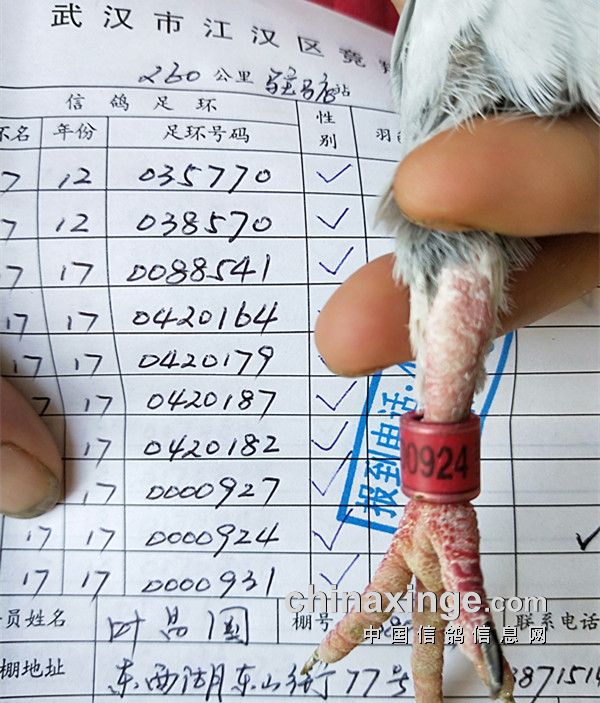 武汉市江汉区竞
260公里驻马店站
信鸽足环
环名 年份 足环号码 性别 羽色
7 12 035770 ✓
7 12 038570 ✓
7 17 0088541 ✓
17 17 0420164
17 17 0420179
17 0420187 ✓
17 0420182 ✓
17 0000927 ✓
17 17 0000924 ✓ ✓
17 17 0000931 ✓
报到电话:
00924
chinaxinge.com
员姓名 叶昌国 棚号 联系电话
中国信鸽信息网
棚地址 东西湖东山街77号 3871514